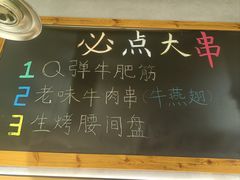 必点大串
1 Q弹牛肥筋
2 老味牛肉串(牛燕翅)
3 生烤腰间盘